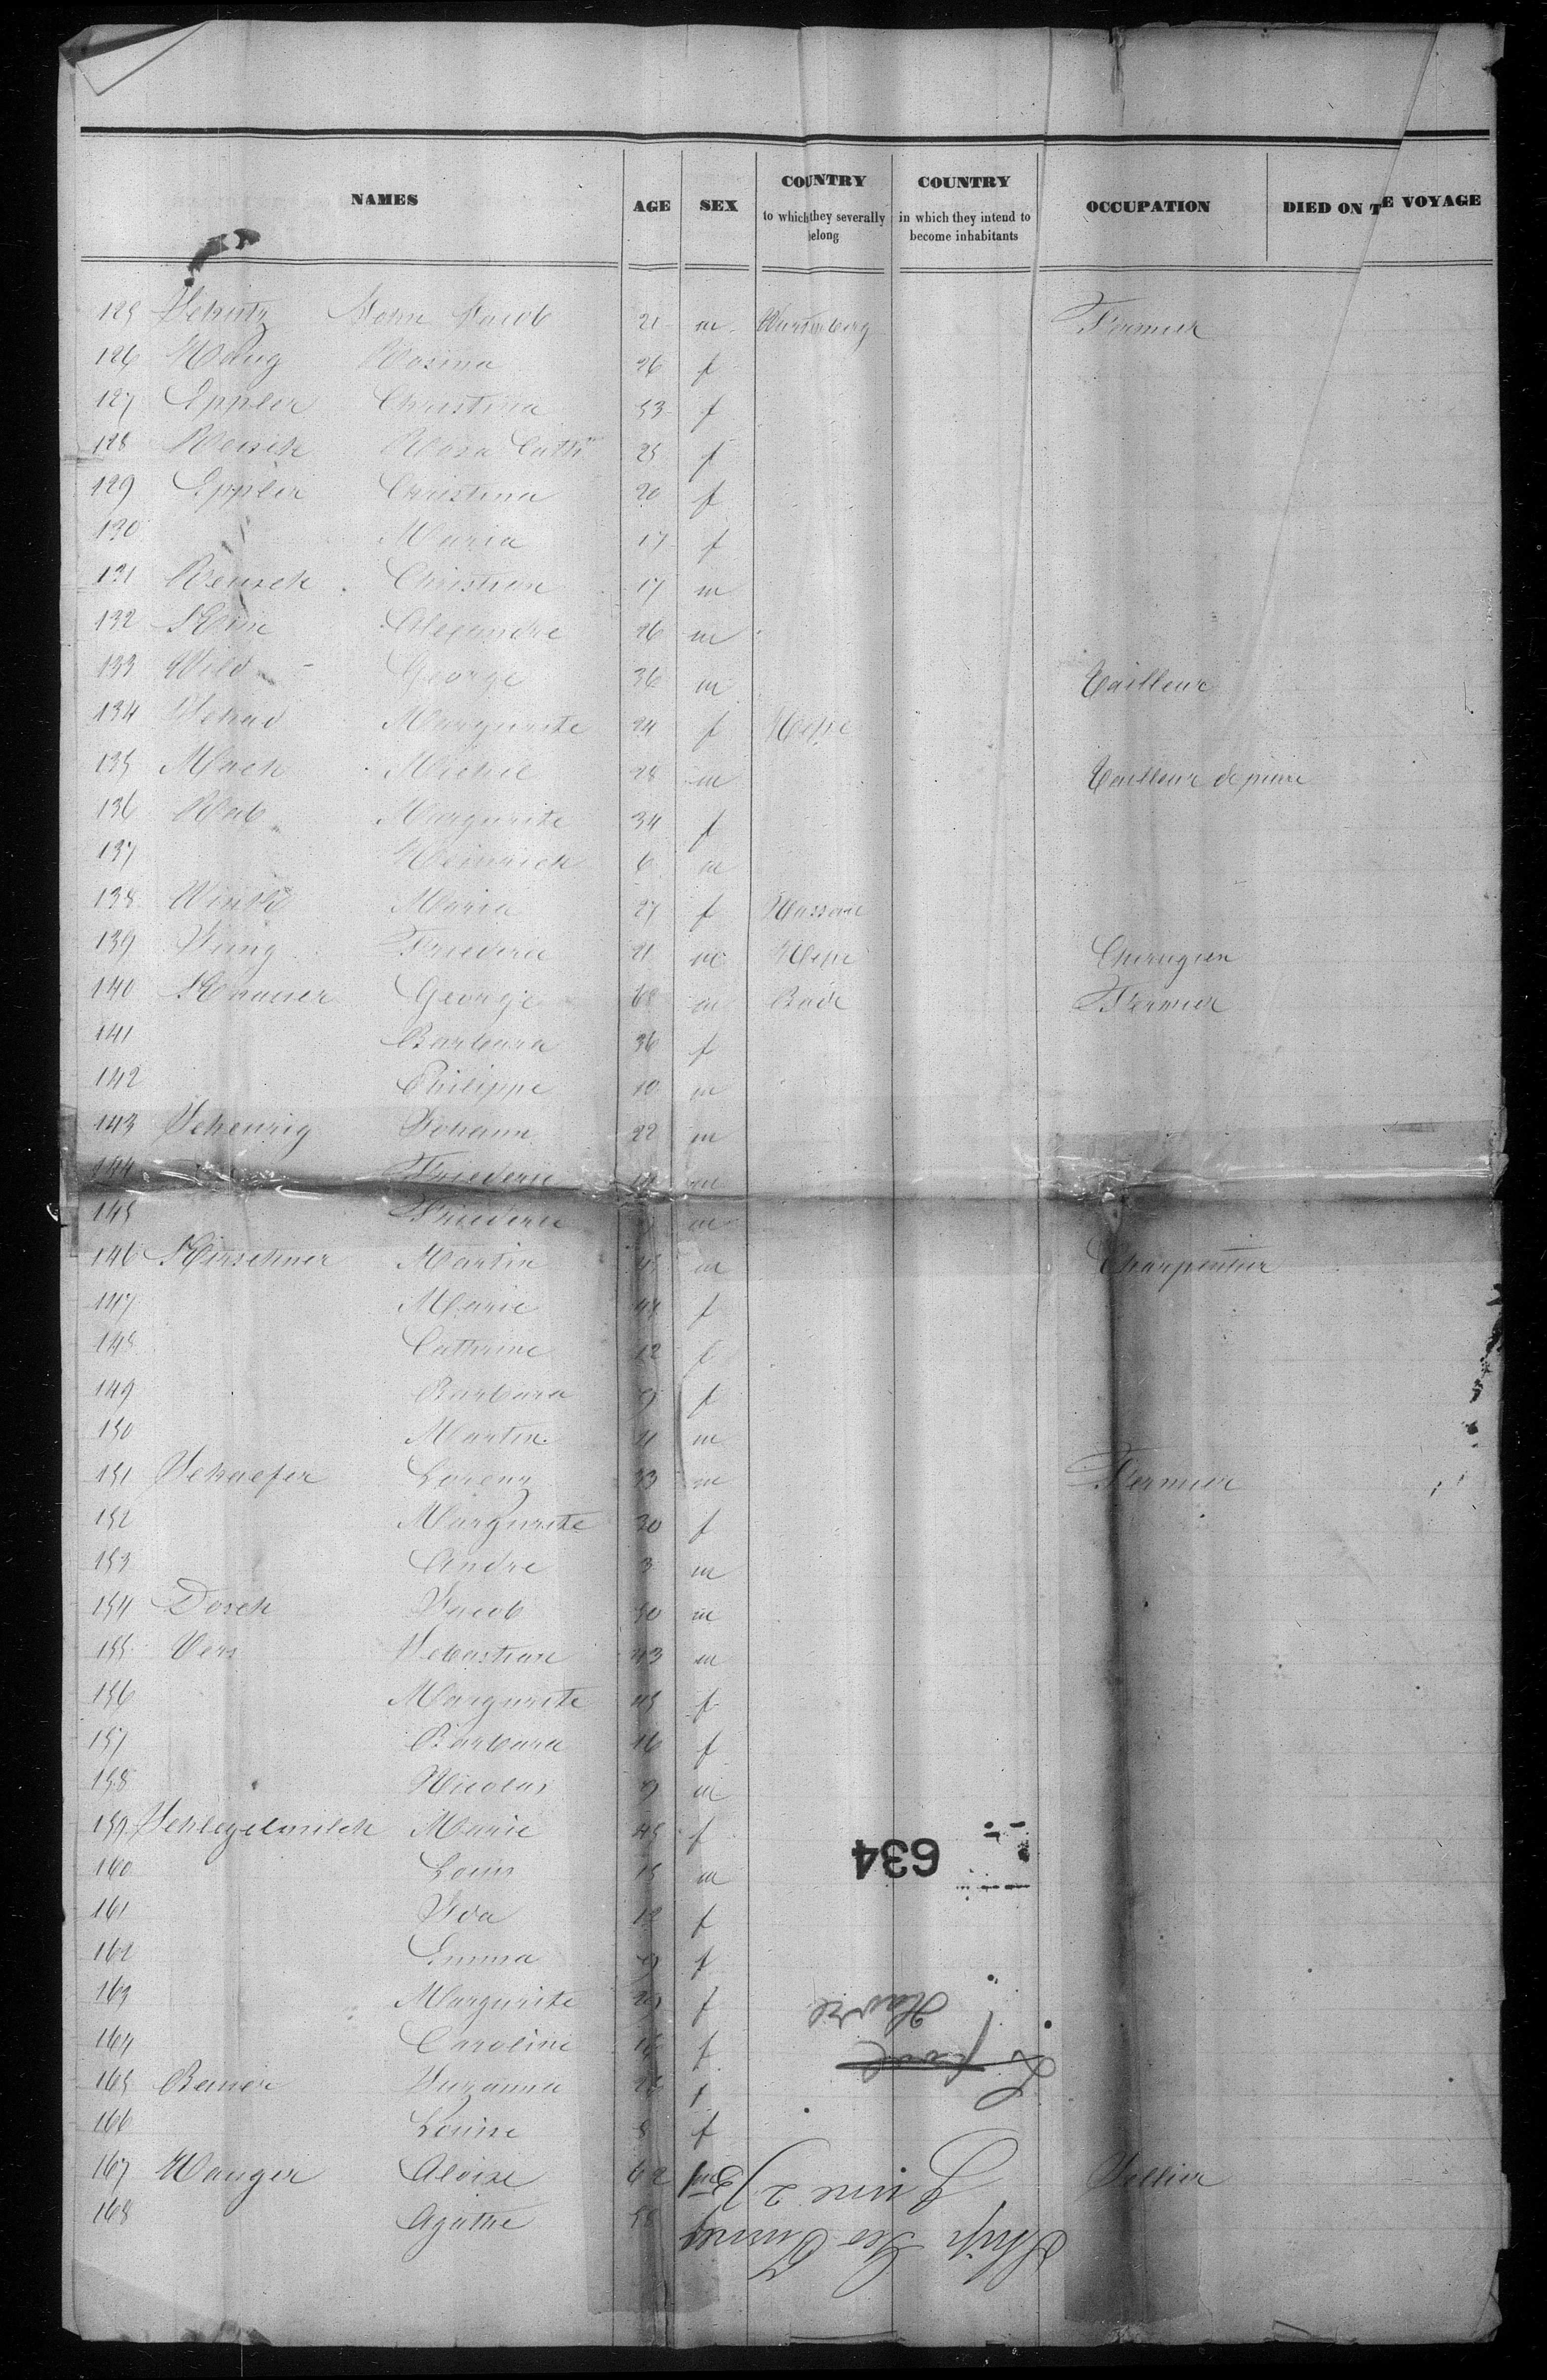 NAMES AGE SEX COUNTRY to which they severally belong COUNTRY in which they intend to become inhabitants OCCUPATION DIED ON T E VOYAGE
125 Schutz John Jacob 21 m Wurtemberg Fermier
126 Haug Rosina 26 f
127 Eppler Christina 53 f
128 Reusch Rosa Cath 25 f
129 Eppler Christina 20 f
130 Maria 17 f
131 Reusch Christian 17 m
132 Alexandre 26 m
133 Wild George 36 m Tailleur
134 Schad Margurite 24 f Hesse
135 Mack Michel 28 m Tailleur de pierre
136 Rab Margurite 34 f
137 Heinrich 6 m
138 Maria 27 f Nassau
139 Jung Friederic 21 m Hesse Chirugien
140 George 68 m Bade Fermier
141 Barbara 36 f
142 Philippe 10 m
143 Scheurig Johann 22 m
144 Friederic m
145 Friederic m
146 Kirschner Martin m Charpentier
147 Marie f
148 Cathrine 12 f
149 Barbara 9 f
150 Martin 4 m
151 Schaefer Lorenz 33 m Fermier
152 Margurite 30 f
153 Andre 3 m
154 Dosch Jacob 50 m
155 Vers Sebastian 43 m
156 Margurite 45 f
157 Barbara 16 f
158 Nicolas 9 m
159 Schlegelmilch Marie 45 f
160 Louis 15 m
161 Ida 12 f
162 Emma 9 f
163 Margurite f
164 Caroline f
165 Suzanna f
166 Louise f
167 Wanger Aloise 62 m Sellier
168 Agathe
634
Havre
L pool
June 2
Ship Geo Turner